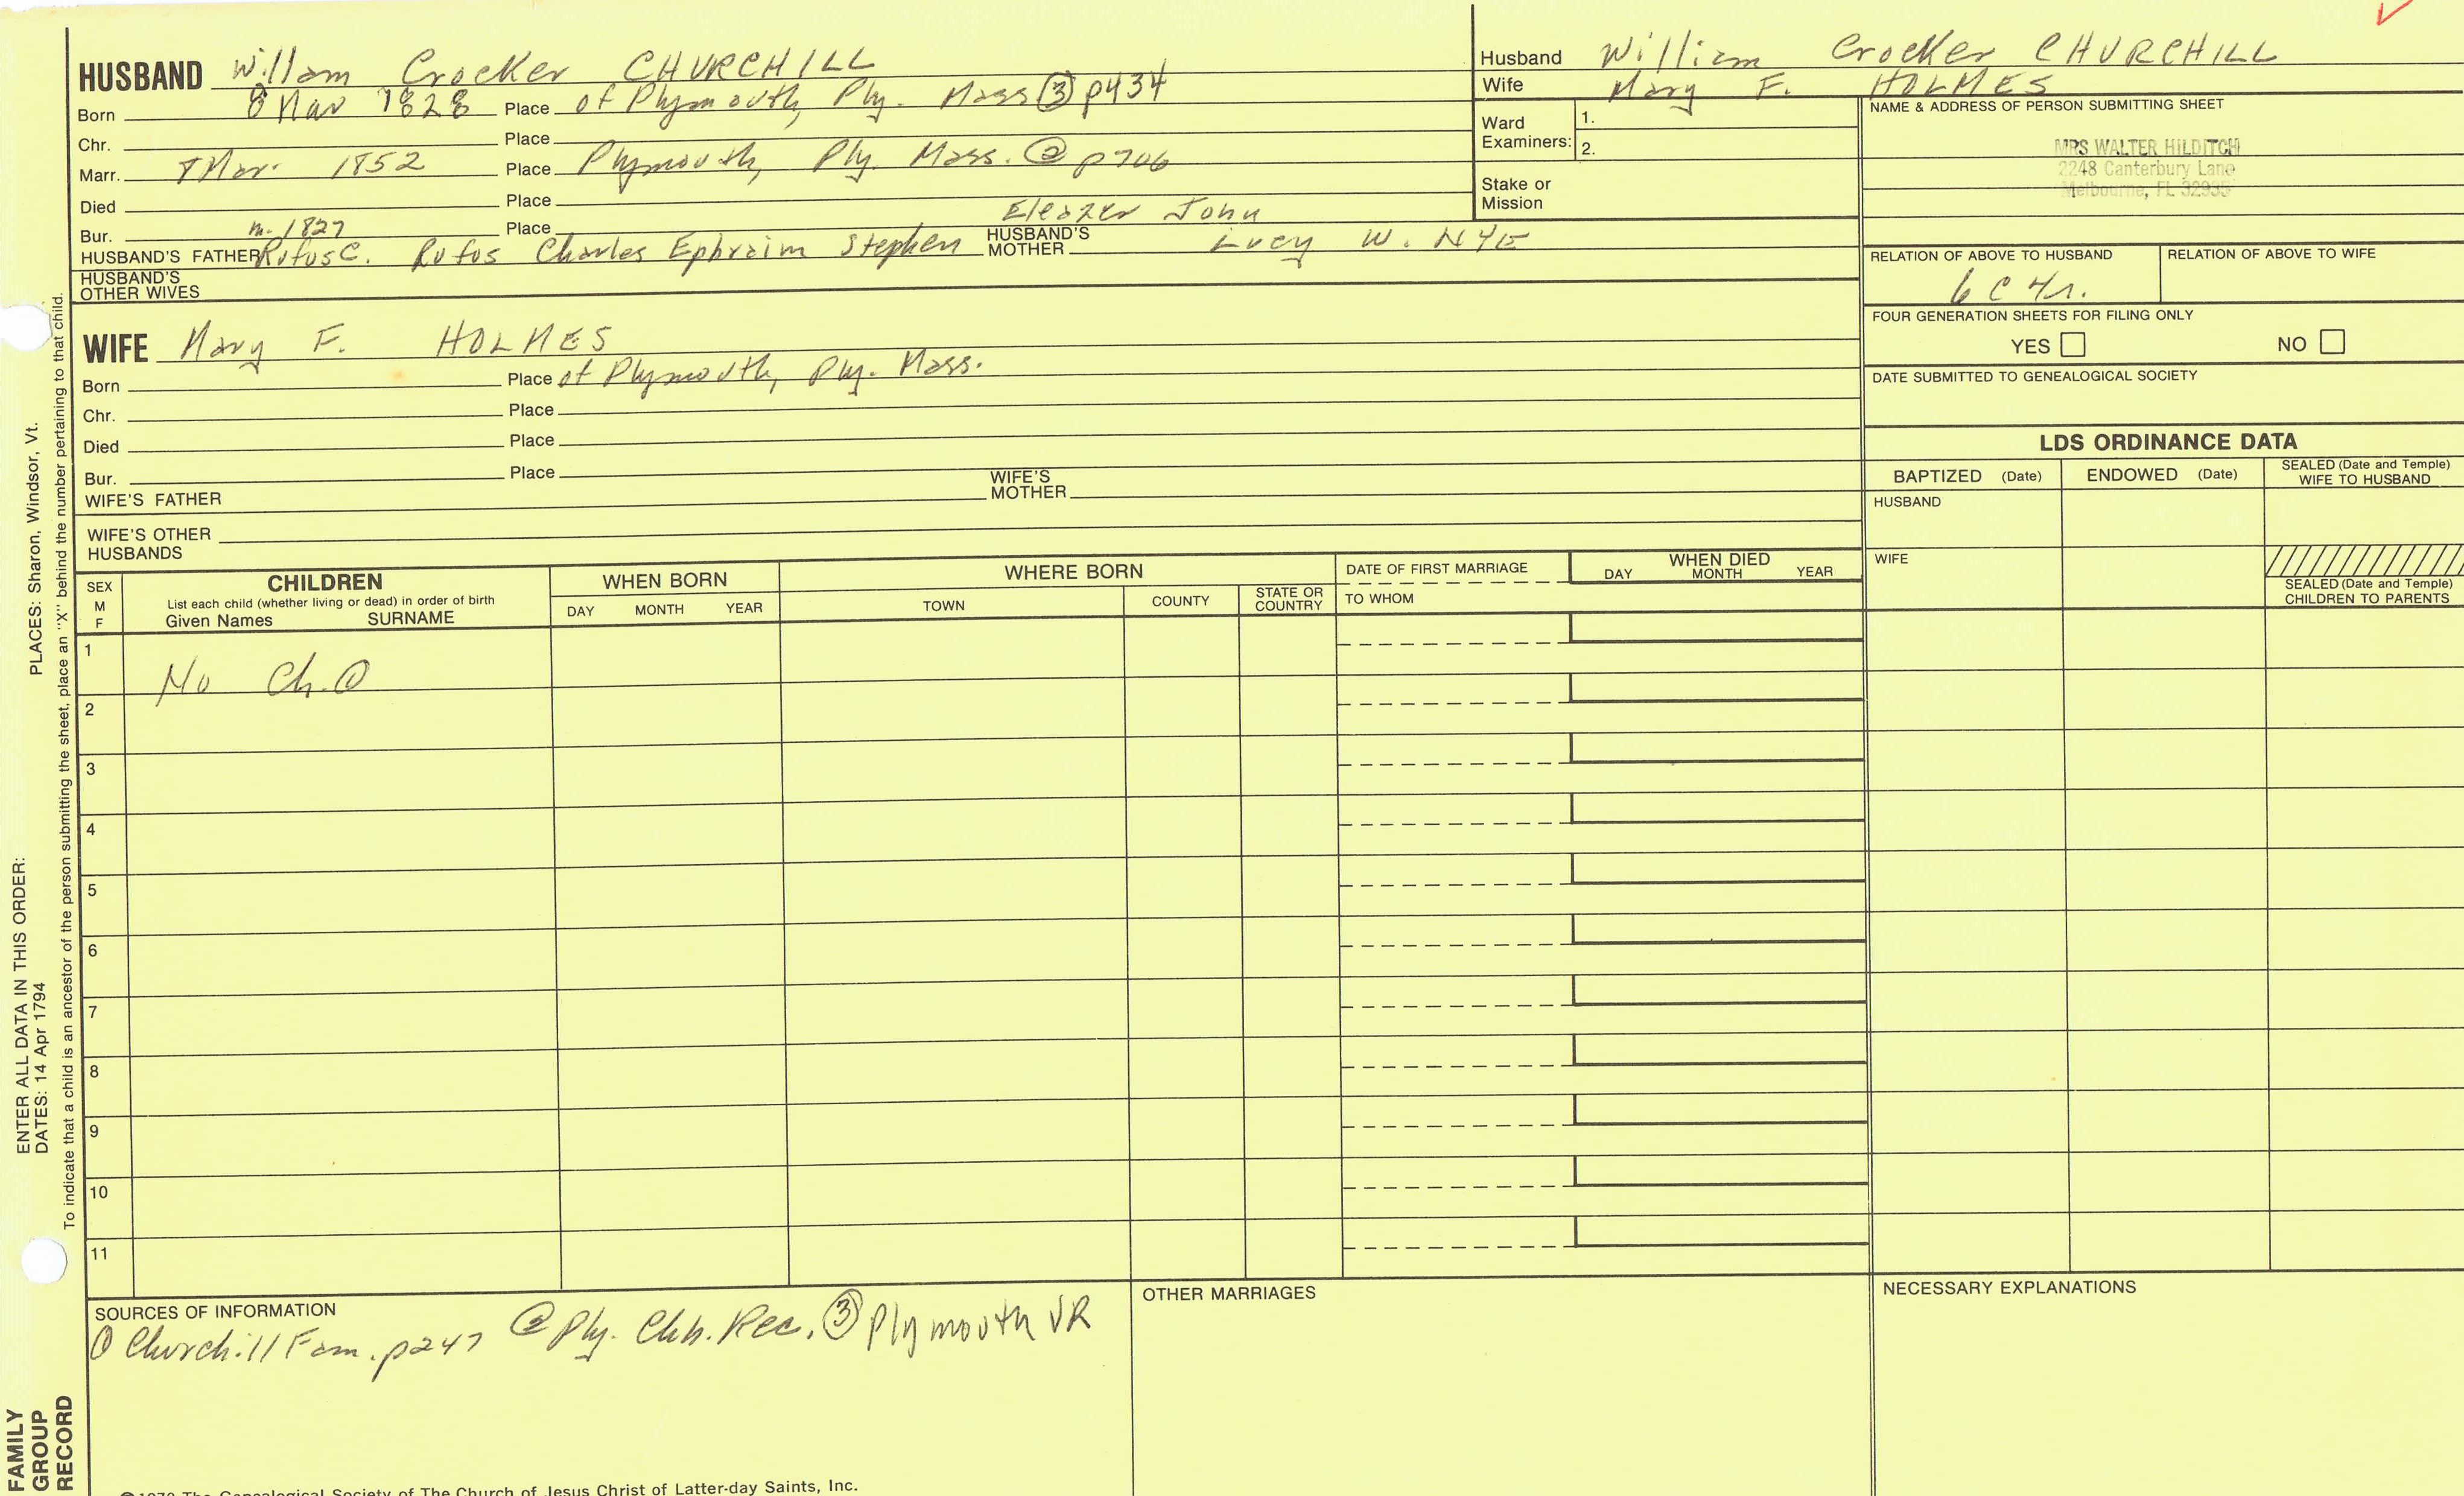 HUSBAND Willam Crocker CHURCHILL
Born 8 Mar 1828 Place of Plymouth, Ply. Mass ③ p434
Chr. Place
Marr. Mar. 1852 Place Plymouth, Ply. Mass. ② p706
Died Place
Bur. Place
m. 1827 Eleazer John
HUSBAND'S FATHER Rufus C. Rufos Charles Ephraim Stephen HUSBAND'S MOTHER Lucy W. NYE
HUSBAND'S OTHER WIVES
Husband William Crocker CHURCHILL
Wife Mary F. HOLMES
Ward Examiners: 1.
2.
Stake or Mission
NAME & ADDRESS OF PERSON SUBMITTING SHEET
MRS WALTER HILDITCH
2248 Canterbury Lane
Melbourne, FL 32935
RELATION OF ABOVE TO HUSBAND RELATION OF ABOVE TO WIFE
6 C 4r.
FOUR GENERATION SHEETS FOR FILING ONLY
YES NO
DATE SUBMITTED TO GENEALOGICAL SOCIETY
WIFE Mary F. HOLMES
Born Place of Plymouth, Ply. Mass.
Chr. Place
Died Place
Bur. Place
WIFE'S FATHER WIFE'S MOTHER
WIFE'S OTHER HUSBANDS
LDS ORDINANCE DATA
BAPTIZED (Date) ENDOWED (Date) SEALED (Date and Temple) WIFE TO HUSBAND
HUSBAND
WIFE
SEALED (Date and Temple) CHILDREN TO PARENTS
SEX M F
CHILDREN
List each child (whether living or dead) in order of birth
Given Names SURNAME
WHEN BORN
DAY MONTH YEAR
WHERE BORN
TOWN COUNTY STATE OR COUNTRY
DATE OF FIRST MARRIAGE
TO WHOM
WHEN DIED
DAY MONTH YEAR
1
No Ch. ①
2
3
4
5
6
7
8
9
10
11
SOURCES OF INFORMATION
① Churchill Fam. p247 ② Ply. Chh. Rec. ③ Plymouth VR
OTHER MARRIAGES
NECESSARY EXPLANATIONS
©1978 The Genealogical Society of The Church of Jesus Christ of Latter-day Saints, Inc.
ENTER ALL DATA IN THIS ORDER:
DATES: 14 Apr 1794 PLACES: Sharon, Windsor, Vt.
To indicate that a child is an ancestor of the person submitting the sheet, place an "X" behind the number pertaining to that child.
FAMILY
GROUP
RECORD